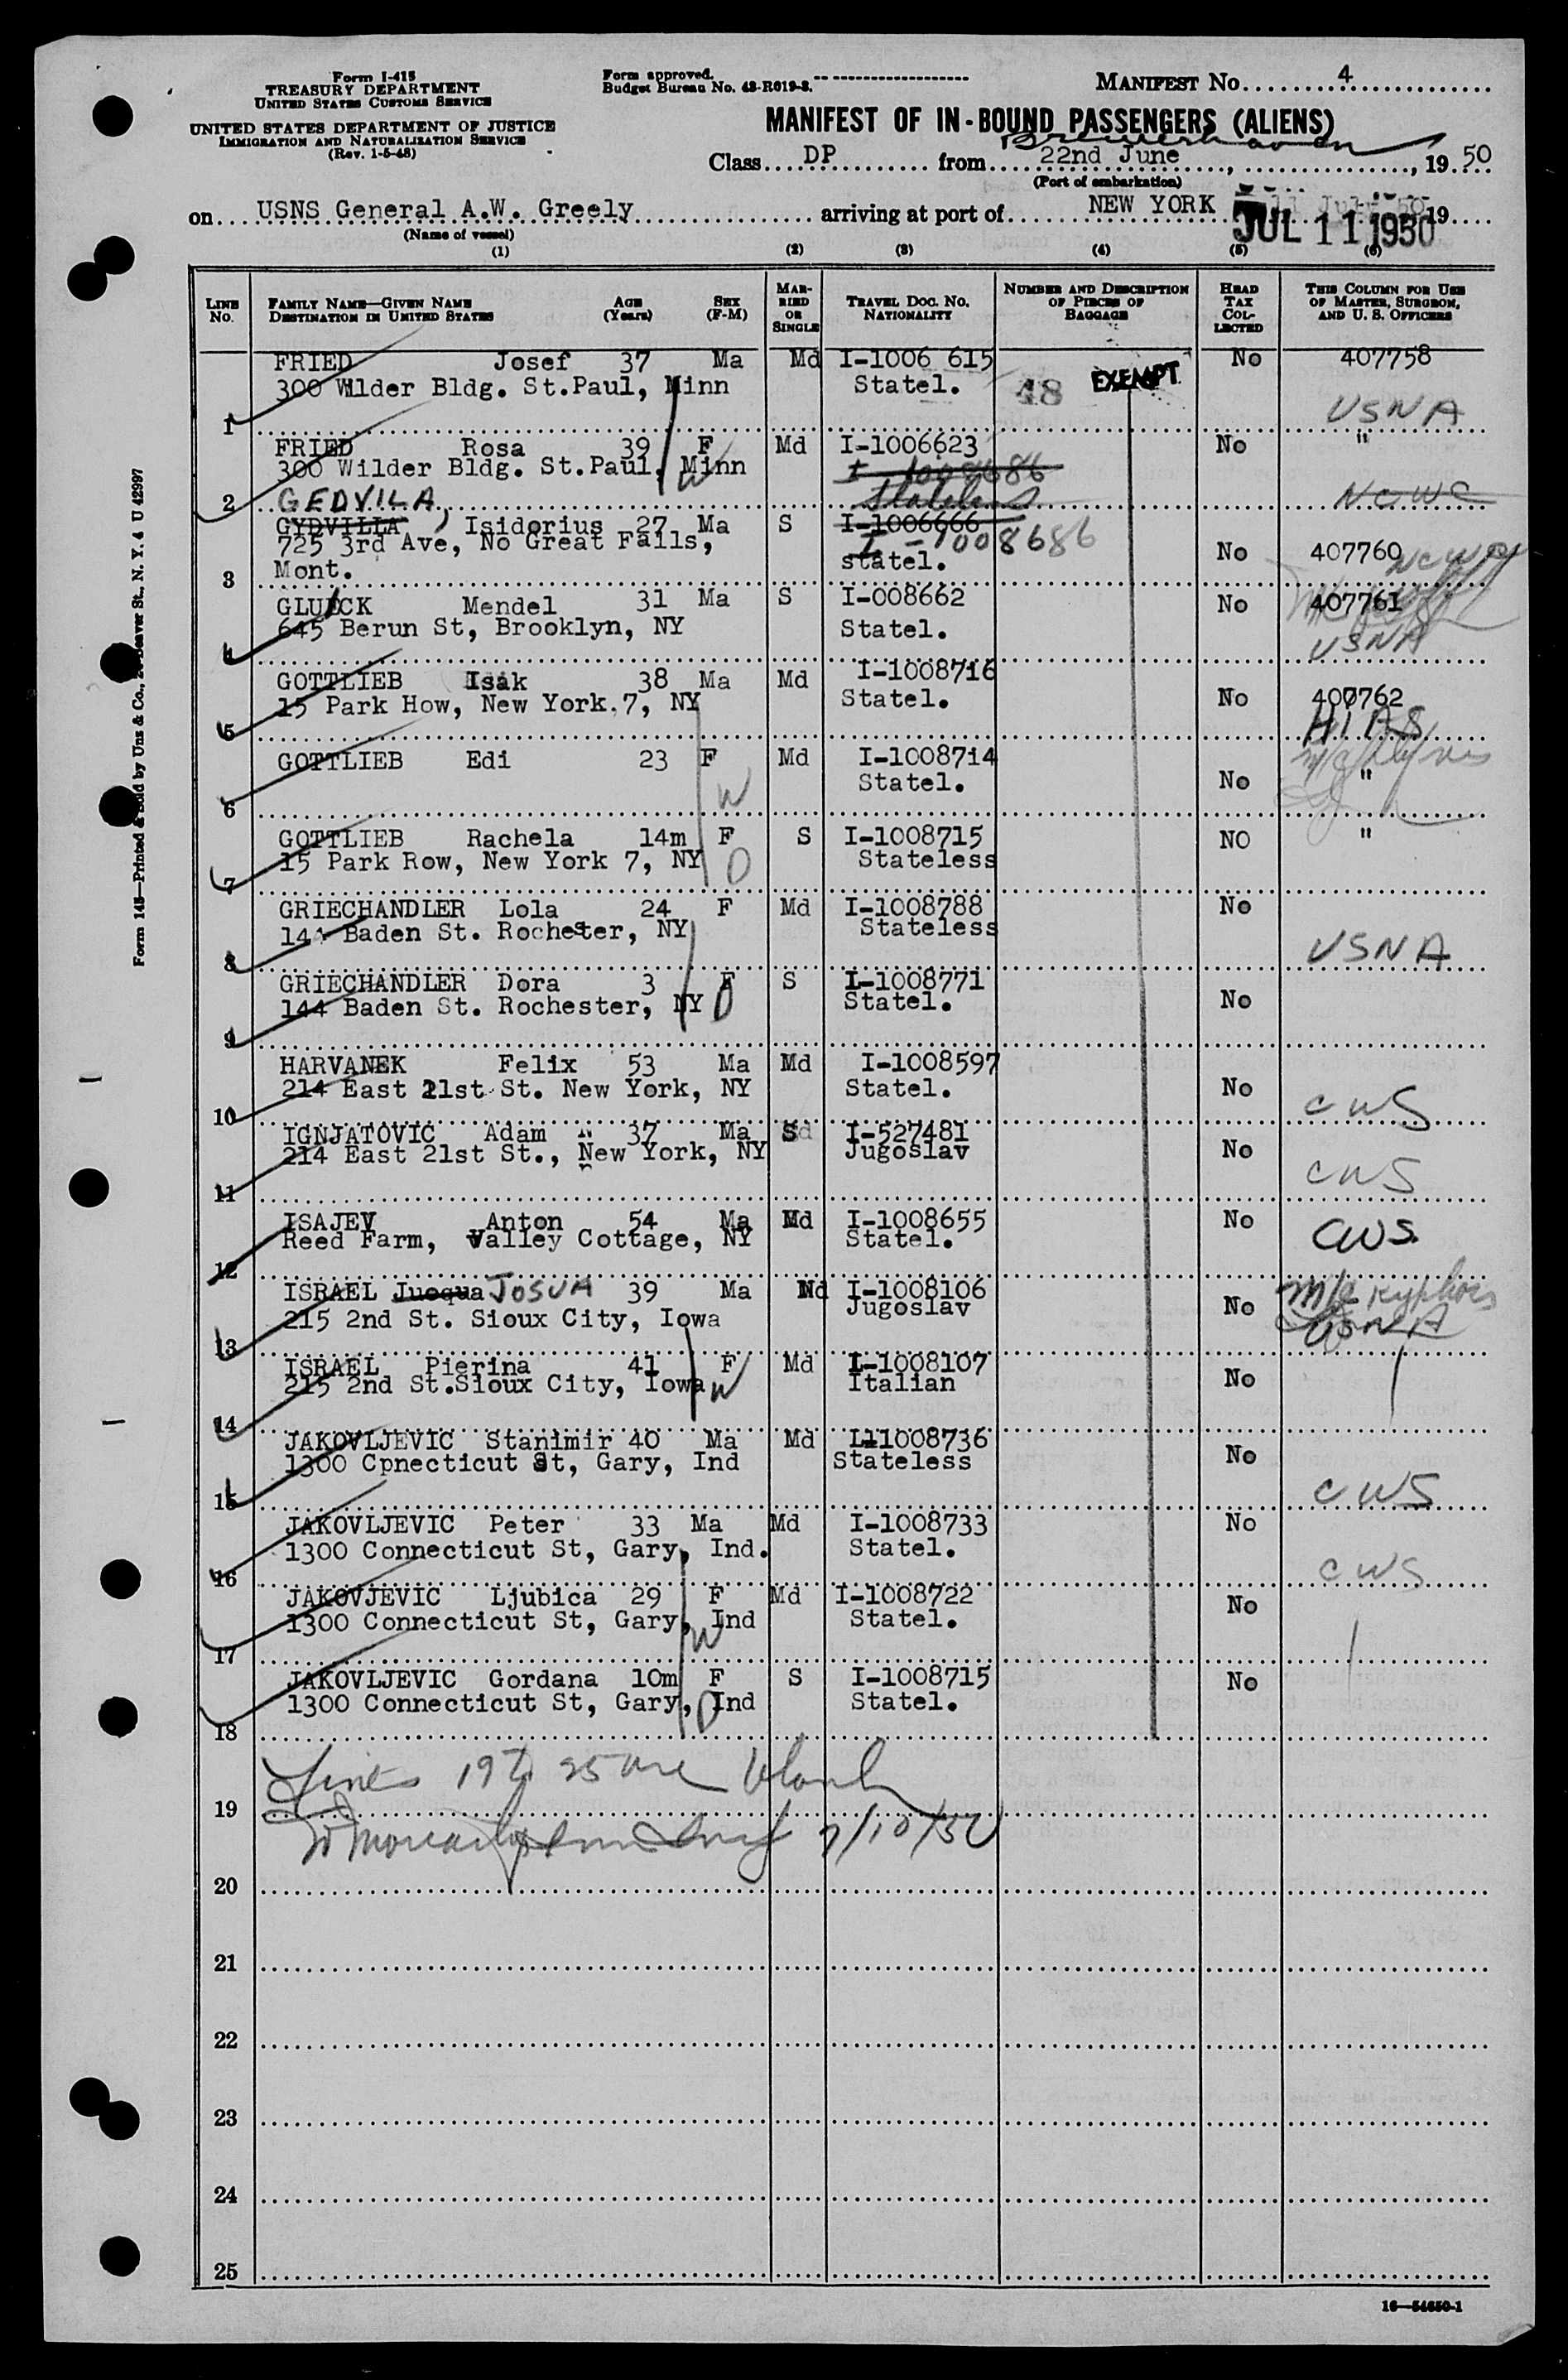 Form I-415
TREASURY DEPARTMENT
UNITED STATES CUSTOMS SERVICE
UNITED STATES DEPARTMENT OF JUSTICE
IMMIGRATION AND NATURALIZATION SERVICE
(Rev. 1-5-48)
Form approved.
Budget Bureau No. 43-R019-3.
MANIFEST No. 4
MANIFEST OF IN-BOUND PASSENGERS (ALIENS)
Bremerhaven
Class DP from 22nd June, 19 50
(Port of embarkation)
on USNS General A.W. Greely arriving at port of NEW YORK 11 July 50 19
(Name of vessel) JUL 11 1950
(1) (2) (3) (4) (5) (6)
LINE No. FAMILY NAME—GIVEN NAME DESTINATION IN UNITED STATES AGE (Years) SEX (F-M) MARRIED OR SINGLE TRAVEL DOC. NO. NATIONALITY NUMBER AND DESCRIPTION OF PIECES OF BAGGAGE HEAD TAX COLLECTED THIS COLUMN FOR USE OF MASTER, SURGEON, AND U. S. OFFICERS
FRIED Josef 37 Ma Md I-1006 615 No 407758
300 Wilder Bldg. St.Paul, Minn Statel. 48 EXEMPT
1 USNA
FRIED Rosa 39 F Md I-1006623 No "
300 Wilder Bldg. St.Paul, Minn W I-1008686
2 GEDVILA, Stateless NCWC
GYDVILLA Isidorius 27 Ma S I-1006666
725 3rd Ave, No Great Falls, I-1008686 No 407760 NCWC
3 Mont. statel.
GLUECK Mendel 31 Ma S I-008662 No 407761
645 Berun St, Brooklyn, NY Statel. USNA
4
GOTTLIEB Isak 38 Ma Md I-1008716
15 Park How, New York.7, NY Statel. No 407762
5 HIAS
GOTTLIEB Edi 23 F Md I-1008714
W Statel. No "
6
GOTTLIEB Rachela 14m F S I-1008715 NO "
15 Park Row, New York 7, NY Stateless
7
GRIECHANDLER Lola 24 F Md I-1008788 No
144 Baden St. Rochester, NY Stateless
8 USNA
GRIECHANDLER Dora 3 F S I-1008771
144 Baden St. Rochester, NY Statel. No
9
HARVANEK Felix 53 Ma Md I-1008597
214 East 21st St. New York, NY Statel. No
10 CWS
IGNJATOVIC Adam 37 Ma S I-527481
214 East 21st St., New York, NY Jugoslav No
11 CWS
ISAJEV Anton 54 Ma Md I-1008655 No
Reed Farm, Valley Cottage, NY Statel. CWS
12
ISRAEL Juoqua JOSUA 39 Ma Md I-1008106 No m/c kyphosis
215 2nd St. Sioux City, Iowa Jugoslav USNA
13
ISRAEL Pierina 41 F Md I-1008107
215 2nd St.Sioux City, Iowa W Italian No
14
JAKOVLJEVIC Stanimir 40 Ma Md L11008736
1300 Cpnecticut St, Gary, Ind Stateless No
15 CWS
JAKOVLJEVIC Peter 33 Ma Md I-1008733 No
1300 Connecticut St, Gary, Ind. Statel.
16 CWS
JAKOVJEVIC Ljubica 29 F Md I-1008722
1300 Connecticut St, Gary, Ind W Statel. No
17
JAKOVLJEVIC Gordana 10m F S I-1008715
1300 Connecticut St, Gary, Ind Statel. No
18
Lines 19 to 25 are blank
19
7/10/50
20
21
22
23
24
25
16—54650-1